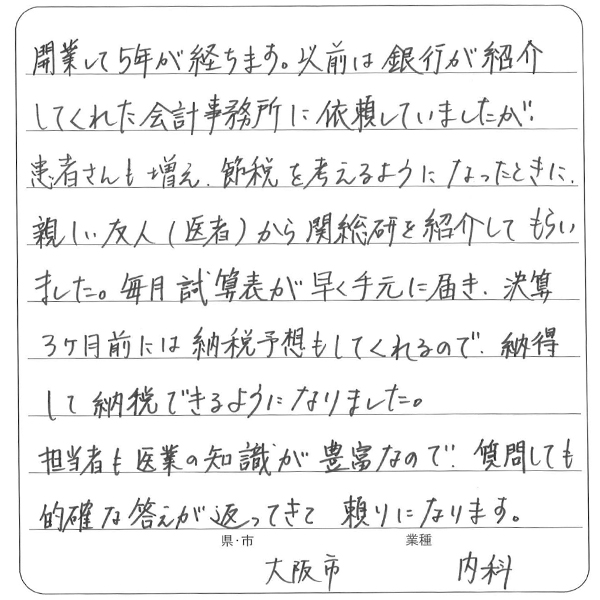 開業して5年が経ちます。以前は銀行が紹介
してくれた会計事務所に依頼していましたが、
患者さんも増え、節税を考えるようになったときに、
親しい友人(医者)から関総研を紹介してもらい
ました。毎月試算表が早く手元に届き、決算
3ヶ月前には納税予想もしてくれるので、納得
して納税できるようになりました。
担当者も医業の知識が豊富なので、質問しても
的確な答えが返ってきて頼りになります。
県・市 業種
大阪市 内科